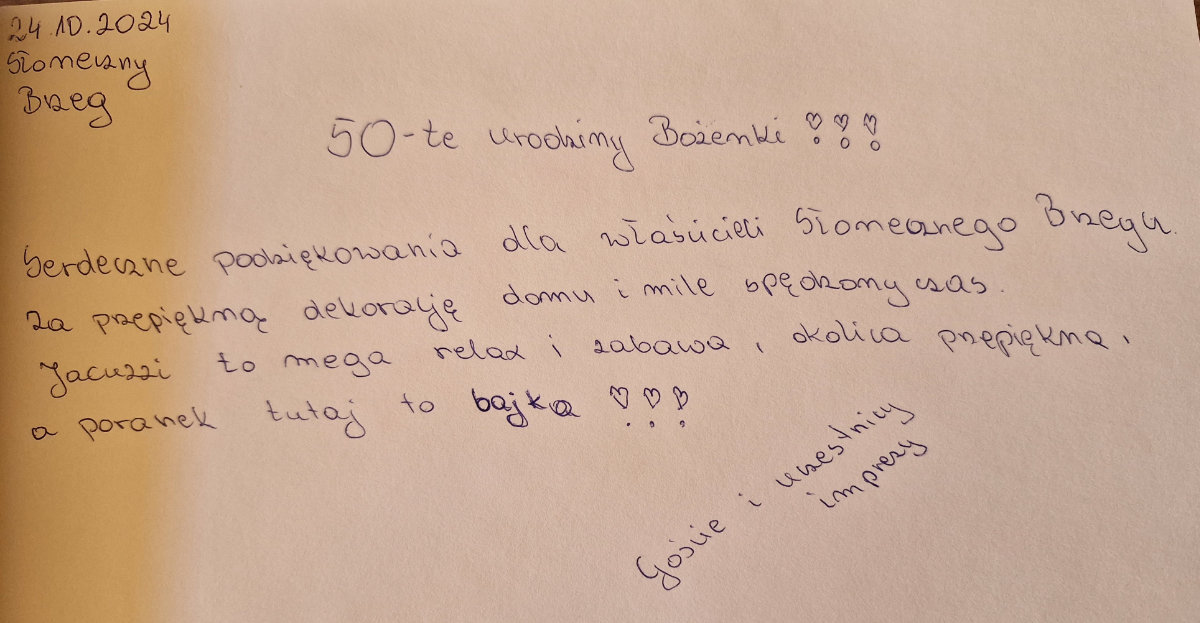 24.10.2024
Słoneczny
Brzeg
50-te urodziny Bożenki !!!
Serdeczne podziękowania dla właścicieli Słonecznego Brzegu
za przepiękną dekorację domu i mile spędzony czas.
Jacuzzi to mega relax i zabawa, okolica przepiękna,
a poranek tutaj to bajka !!!
Goście i uczestnicy
imprezy